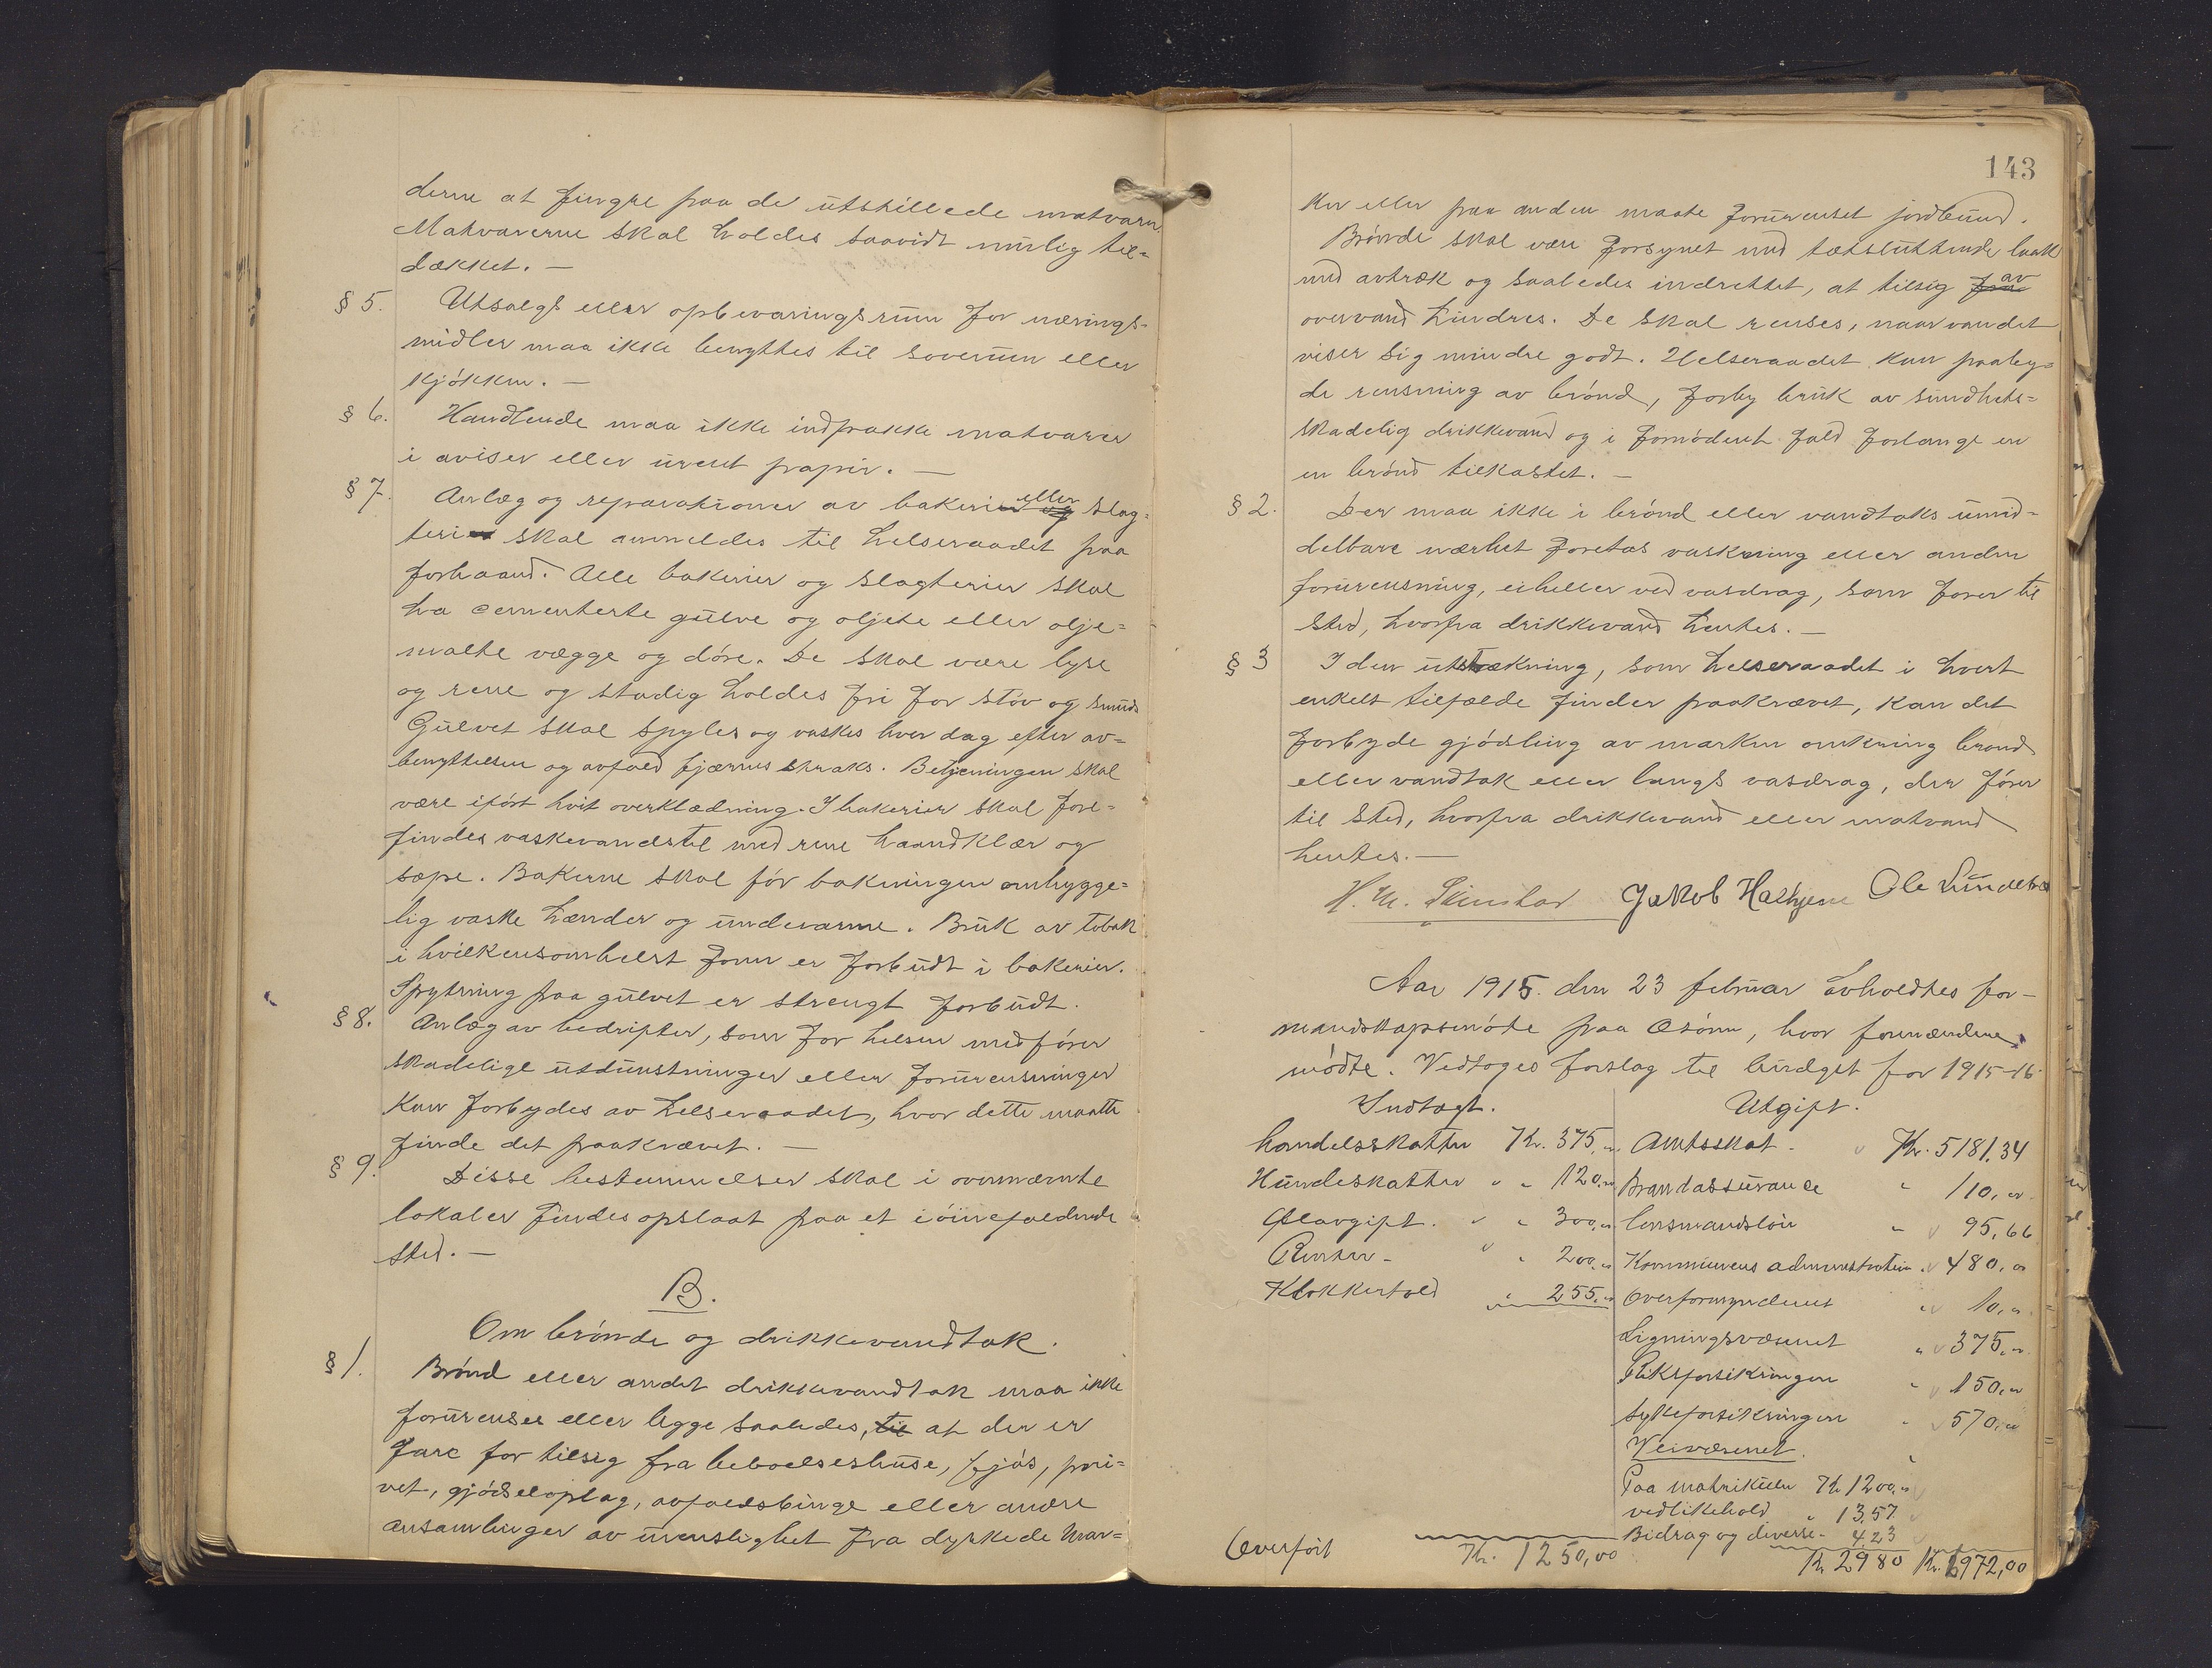 derne at fingre paa de utstillede matvarer.
Matvarerne skal holdes saavidt mulig til=
dækket. —
§ 5. Utsalgs eller opbevaringsrum for nærings-
midler maa ikke benyttes til soverum eller
kjøkken. —
§ 6. Handlende maa ikke indpakke matvarer
i aviser eller urent papir. —
§ 7. Anlæg og reparationer av bakerier og eller slag=
teri skal anmeldes til helseraadet paa
forhaand. Alle bakerier og slagterier skal
ha cementerte gulve og oljete eller olje=
malte vægge og døre. De skal være lyse
og rene og stadig holdes fri for støv og smuds
Gulvet skal spyles og vaskes hver dag efter av=
benyttelsen og avfald fjærnes straks. Betjeningen skal
være iført hvit overklædning. I bakerier skal fore=
findes vaskevandstel med rene haandklær og
sæpe. Bakerne skal før bakningen omhygge=
lig vaske hænder og underarme. Bruk av tobak
i hvilkensomhelst form er forbudt i bakerier.
Spytning paa gulvet er strengt forbudt.
§ 8. Anlæg av bedrifter, som for helsen medfører
skadelige utdunstninger eller forurensninger
kan forbydes av helseraadet, hvor dette maatte
finde det paakrævet. —
§ 9. Disse bestemmelser skal i ovennævnte
lokaler findes opslaat paa et iøinefaldende
sted. —
B.
Om brønde og drikkevandtak.
§ 1. Brønd eller andet drikkevandtak maa ikke
forurenses eller ligge saaledes, til at der er
fare for tilsig fra beboelseshuse, fjøs, pri=
vet, gjødseloplag, avfaldsbinge eller andre
ansamlinger av urenslighet fra dyrkede mar=
143
ker eller paa anden maate forurenset jordbund.
Brønde skal være forsynet med tætsluttende laak
med avtræk og saaledes indrettet, at tilsig fra av
overvand hindres. De skal renses, naar vandet
viser sig mindre godt. Helseraadet kan paaby=
de rensning av brønd, forby bruk av sundhets=
skadelig drikkevand og i fornødent fald forlange en
en brønd tilkastet. —
§ 2. Der maa ikke i brønd eller vandtaks umid=
delbare nærhet foretas vaskning eller anden
forurensning, eiheller ved vasdrag, som fører til
sted, hvorfra drikkevand hentes. —
§ 3 I den utstrækning, som helseraadet i hvert
enkelt tilfælde finder paakrævet, kan det
forbyde gjødsling av marken omkring brønd
eller vandtak eller langs vasdrag, der fører
til sted, hvorfra drikkevand eller matvand
hentes. —
Jakob Ole
Aar 1915. den 23 februar avholdtes for-
mandskapsmøte paa Osøren, hvor formændene
mødte. Vedtoges forslag til budget for 1915-16.
Indtægt. Utgift.
Handelsskatter Kr. 375,00 Amtsskat - Kr. 5181,34
Hundeskatter " " 120,00 Brandassurance " 110,00
Ølavgift. " " 300,00 Lensmandsløn " 95,66
Renter - " " 200,00 Kommunens administration " 480,00
Klokkertold " 255,00 Overformynderiet " 10,00
Ligningsvæsenet " 375,00
Riksforsikringen " 150,00
Sykeforsikringen " 570,00
Veivæsenet. "
Paa matrikulen Kr 1200,00
vedlikehold " 1357
Bidrag og diverse - 423
Overført Kr. 1250,00 Kr 2980 Kr. 6972,00